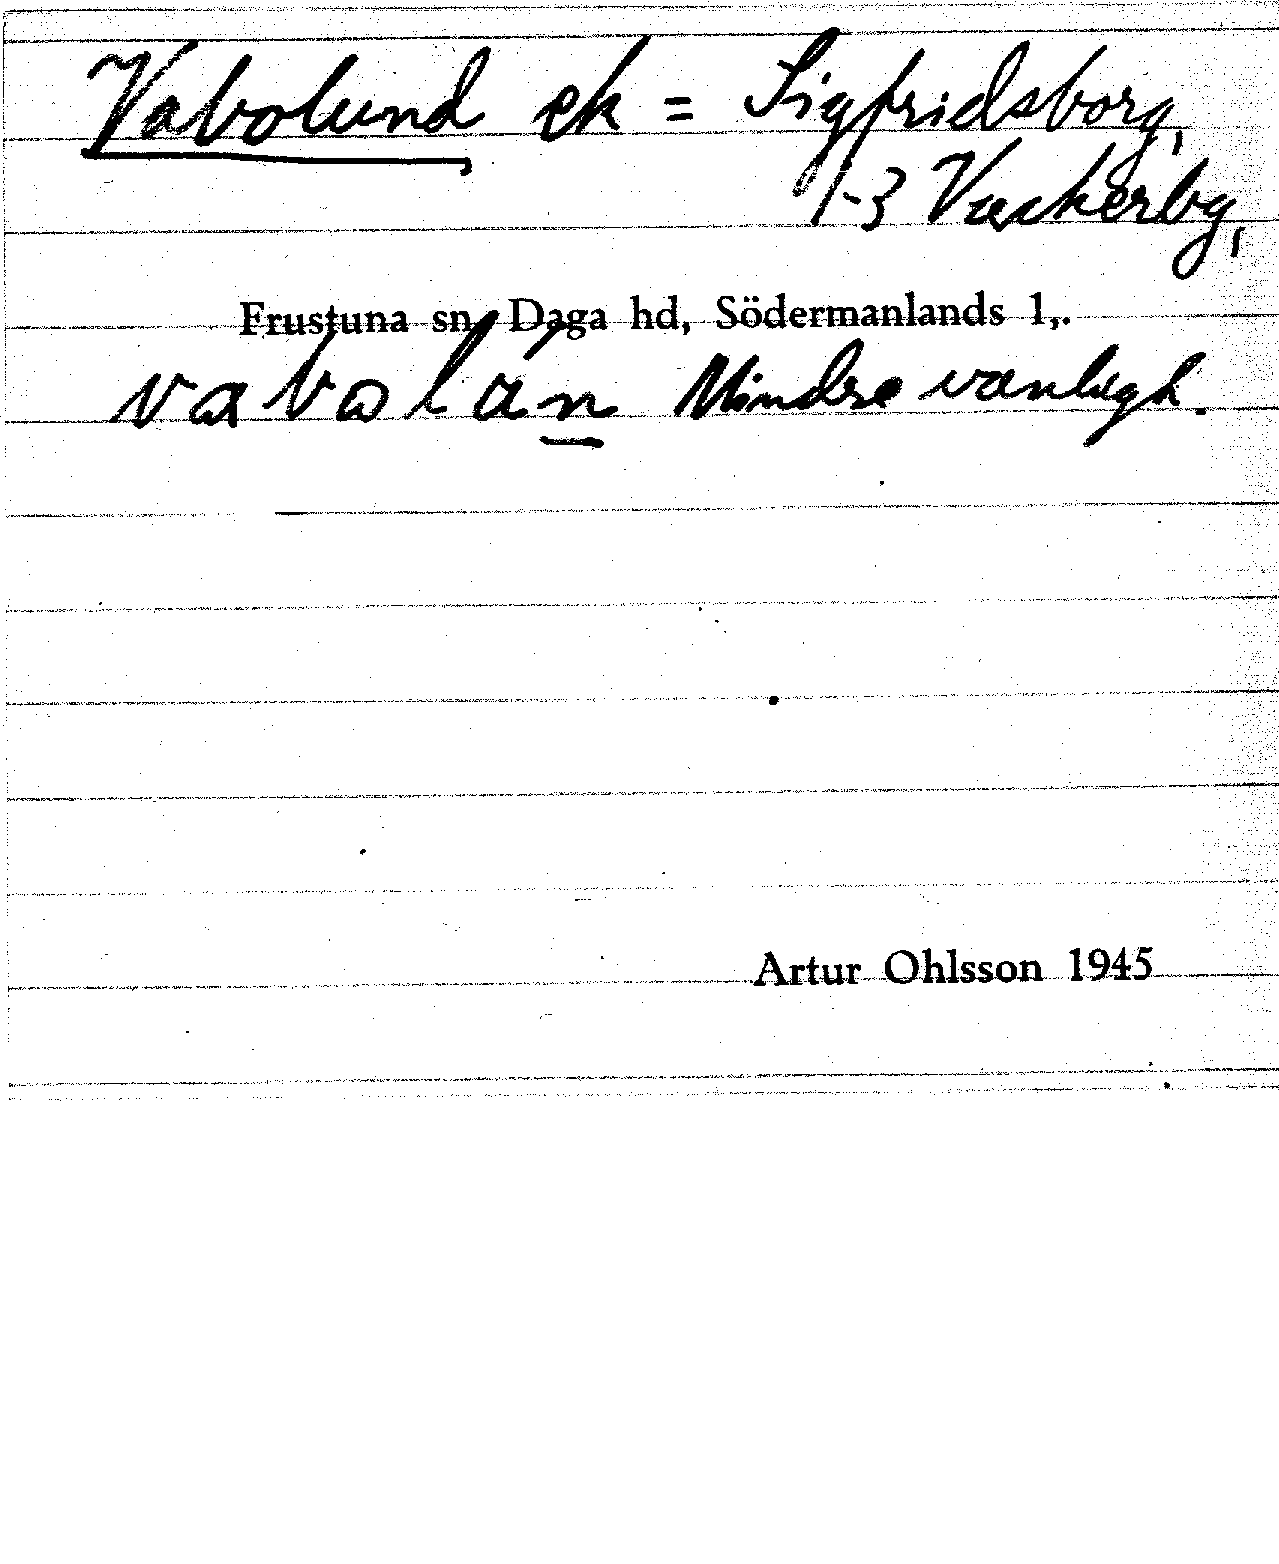 Vabolund ek = Sigfridsborg,
1-3 Vackerby,
Frustuna sn, Daga hd, Södermanlands l,.
vabolan Mindre vanligh.
Artur Ohlsson 1945